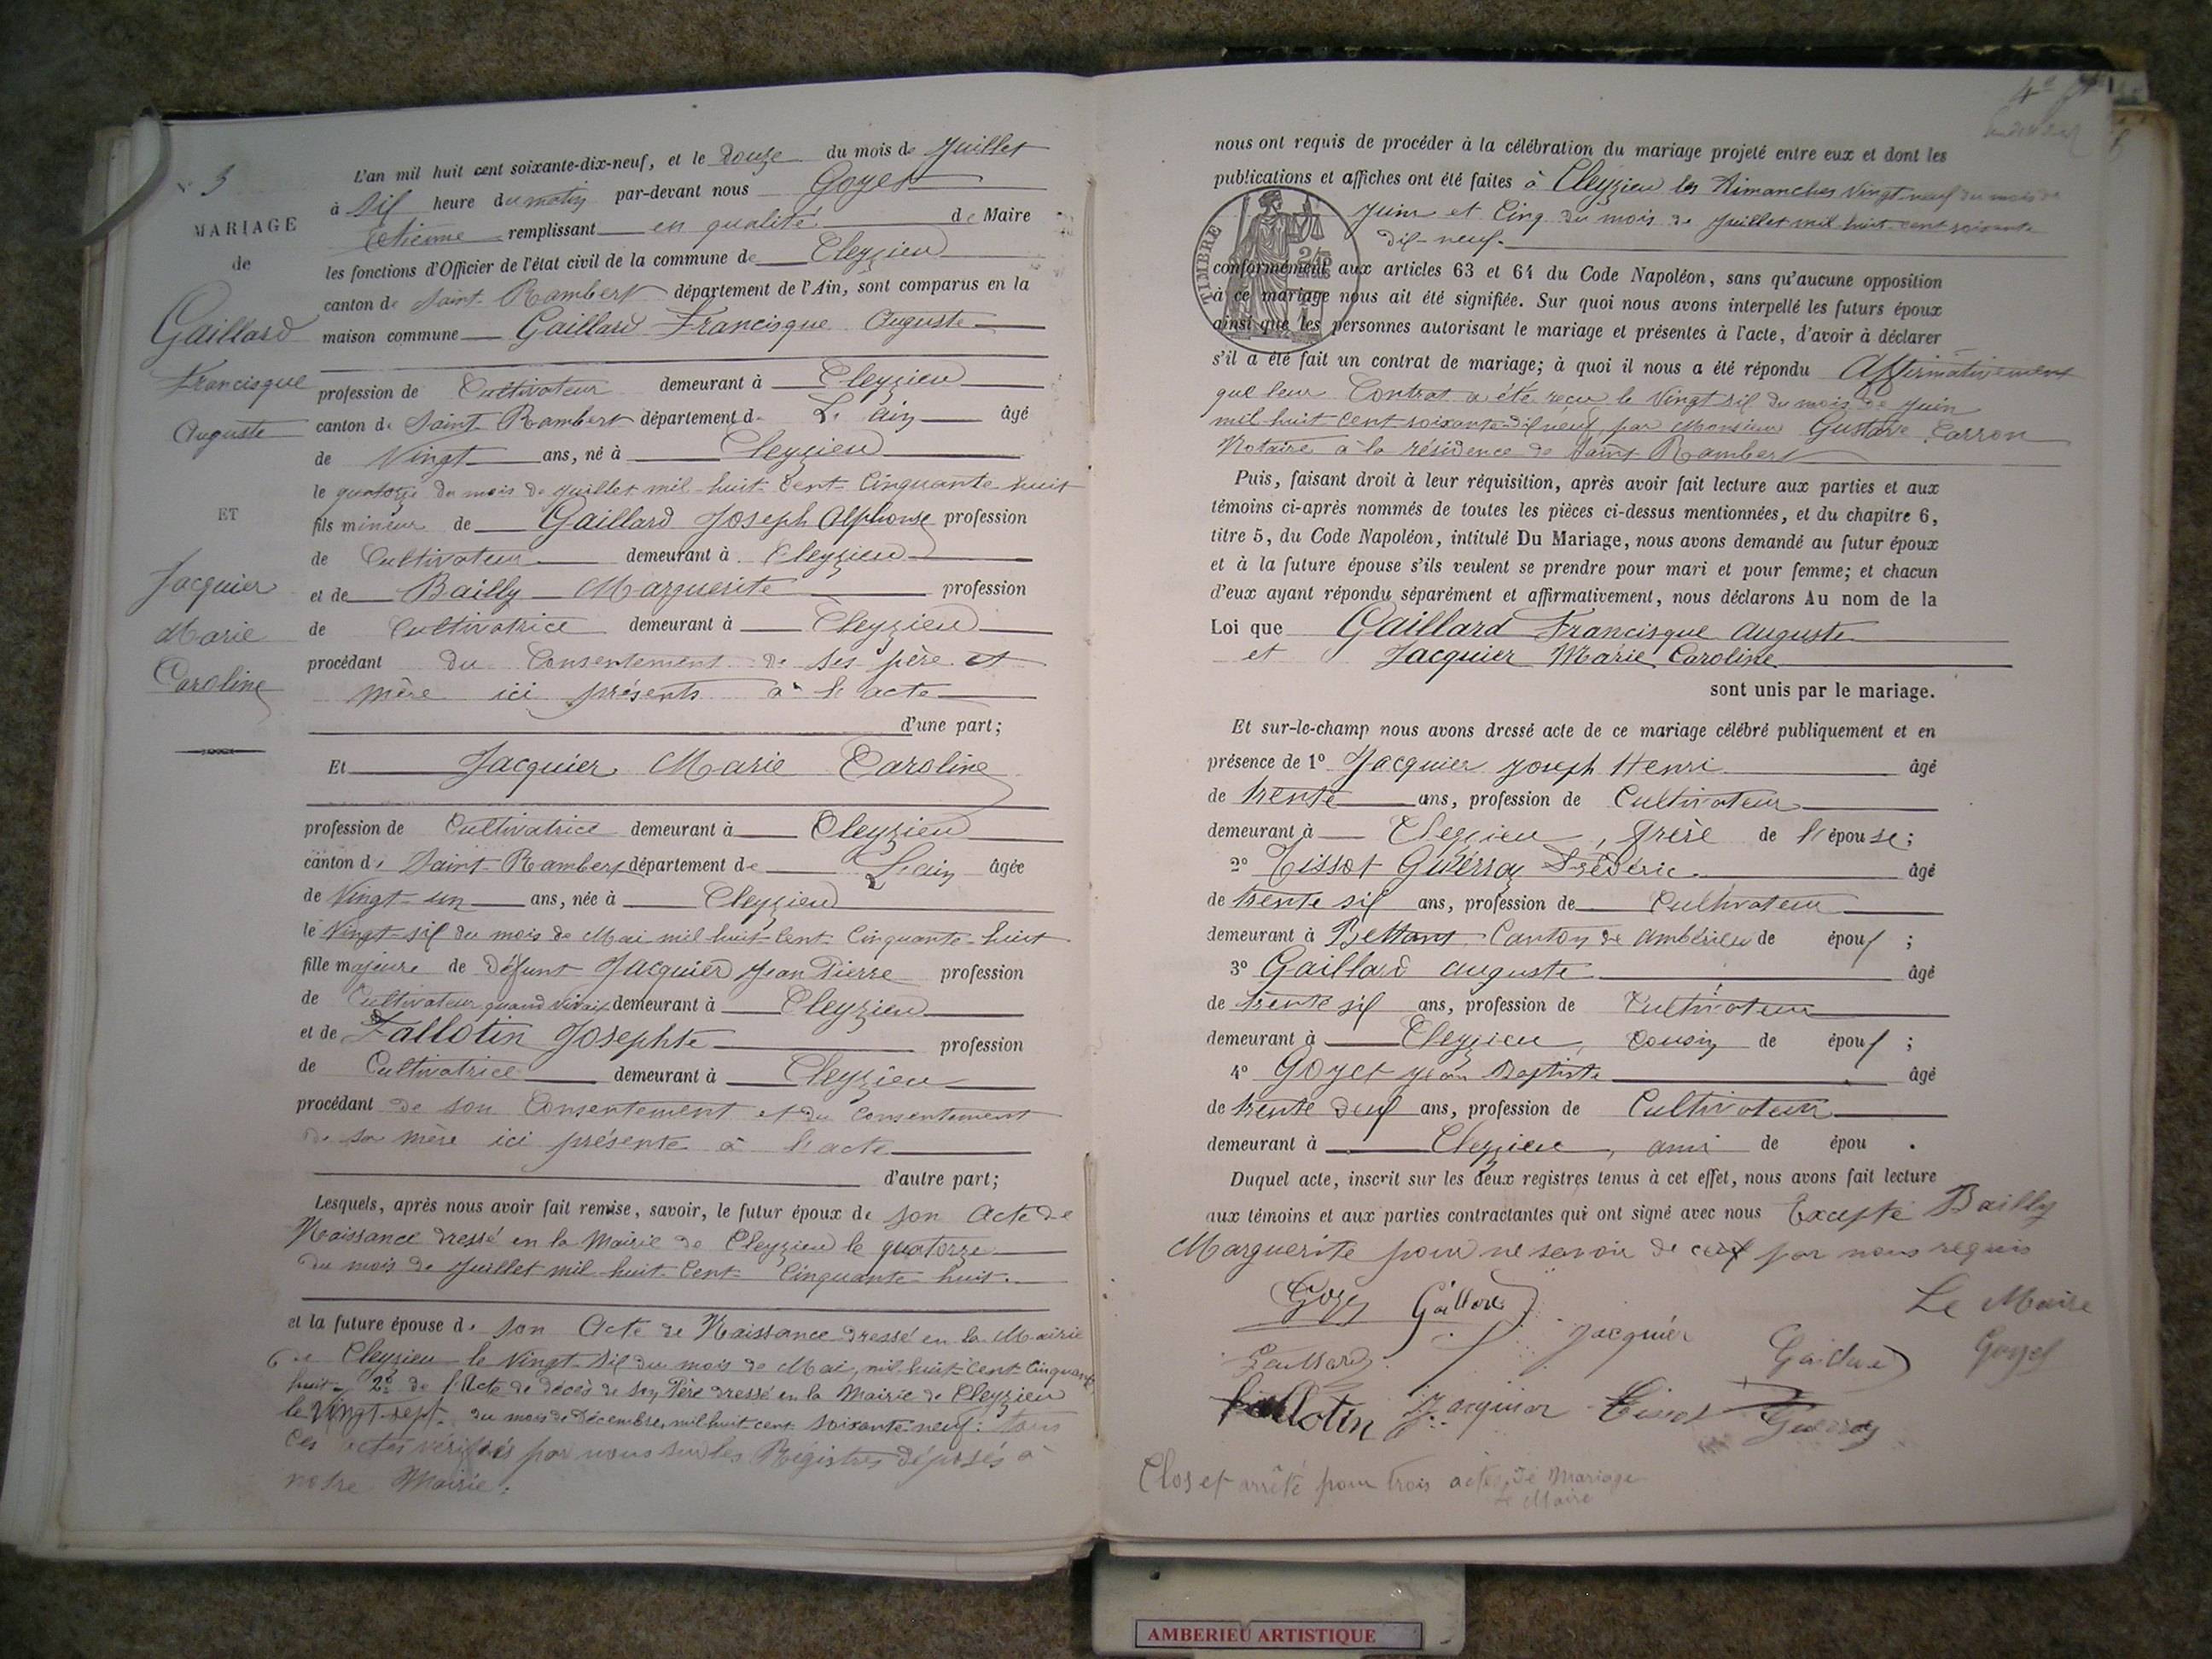 N° 3
MARIAGE
de
Gaillard
Francisque
Auguste
ET
Jacquier
Marie
Caroline
L'an mil huit cent soixante-dix-neuf, et le Douze du mois de Juillet
à Six heure du matin par-devant nous Goyet
Etienne remplissant en qualité de Maire
les fonctions d'Officier de l'état civil de la commune de Cleyzieu
canton de Saint-Rambert département de l'Ain, sont comparus en la
maison commune Gaillard Francisque Auguste
profession de Cultivateur demeurant à Cleyzieu
canton de Saint Rambert département d. L'ain âgé
de Vingt ans, né à Cleyzieu
le quatorze du mois de Juillet mil-huit-Cent-Cinquante huit
fils mineur de Gaillard Joseph Alphonse profession
de Cultivateur demeurant à Cleyzieu
et de Bailly Marguerite profession
de Cultivatrice demeurant à Cleyzieu
procédant du Consentement de ses père et
mère ici présents à l'acte
d'une part;
Et Jacquier Marie Caroline
profession de Cultivatrice demeurant à Cleyzieu
canton de Saint-Rambert département de L'ain âgée
de Vingt-un ans, née à Cleyzieu
le Vingt-six du mois de Mai mil huit-Cent-Cinquante-huit
fille majeure de Défunt Jacquier Jean Pierre profession
de Cultivateur quand vivait demeurant à Cleyzieu
et de Fallotin Josephte profession
de Cultivatrice demeurant à Cleyzieu
procédant de son Consentement et du consentement
de sa mère ici présente à l'acte
d'autre part;
Lesquels, après nous avoir fait remise, savoir, le futur époux de son Acte de
Naissance dressé en la Mairie de Cleyzieu le quatorze
du mois de Juillet mil-huit-Cent-Cinquante-huit.
et la future épouse d. son Acte de Naissance dressé en la Mairie
de Cleyzieu le Vingt-six du mois de Mai, mil huit-Cent-Cinquante
huit 2° de l'Acte de décès de son Père dressé en la Mairie de Cleyzieu
le Vingt-sept du mois de Décembre mil huit cent soixante-neuf: tous
Ces actes vérifiés par nous sur les Régistres déposés à
notre Mairie.
nous ont requis de procéder à la célébration du mariage projeté entre eux et dont les
publications et affiches ont été faites à Cleyzieu les Dimanches Vingt-neuf du mois de
Juin et Cinq du mois de Juillet mil huit-cent soixante
dix-neuf.
TIMBRE
25
conformément aux articles 63 et 64 du Code Napoléon, sans qu'aucune opposition
à ce mariage nous ait été signifiée. Sur quoi nous avons interpellé les futurs époux
ainsi que les personnes autorisant le mariage et présentes à l'acte, d'avoir à déclarer
s'il a été fait un contrat de mariage; à quoi il nous a été répondu Affirmativement
que leur Contrat a été reçu le Vingt six du mois de Juin
mil-huit-cent-soixante-dix neuf par Monsieur Gustave Carron
Notaire à la résidence de Saint Rambert
Puis, faisant droit à leur réquisition, après avoir fait lecture aux parties et aux
témoins ci-après nommés de toutes les pièces ci-dessus mentionnées, et du chapitre 6,
titre 5, du Code Napoléon, intitulé Du Mariage, nous avons demandé au futur époux
et à la future épouse s'ils veulent se prendre pour mari et pour femme; et chacun
d'eux ayant répondu séparément et affirmativement, nous déclarons Au nom de la
Loi que Gaillard Francisque Auguste
et Jacquier Marie Caroline
sont unis par le mariage.
Et sur-le-champ nous avons dressé acte de ce mariage célébré publiquement et en
présence de 1° Jacquier Joseph Henri âgé
de trente ans, profession de Cultivateur
demeurant à Cleyzieu, frère de l'épouse;
2° Tissot Guerray Frédéric âgé
de trente six ans, profession de Cultivateur
demeurant à Bettant Canton de Ambérieu de époux ;
3° Gaillard Auguste âgé
de trente six ans, profession de Cultivateur
demeurant à Cleyzieu, Cousin de époux ;
4° Goyet Jean Baptiste âgé
de trente deux ans, profession de Cultivateur
demeurant à Cleyzieu, ami de épou .
Duquel acte, inscrit sur les deux registres tenus à cet effet, nous avons fait lecture
aux témoins et aux parties contractantes qui ont signé avec nous Excepté Bailly
Marguerite pour ne savoir de par nous requis
Goyet Gaillard
Le Maire
Jacquier
Gaillard
Goyet
Gaillard
Fallotin Jacquier Tissot Guerray
Clos et arrêté pour trois actes de Mariage
Le Maire
AMBERIEU ARTISTIQUE